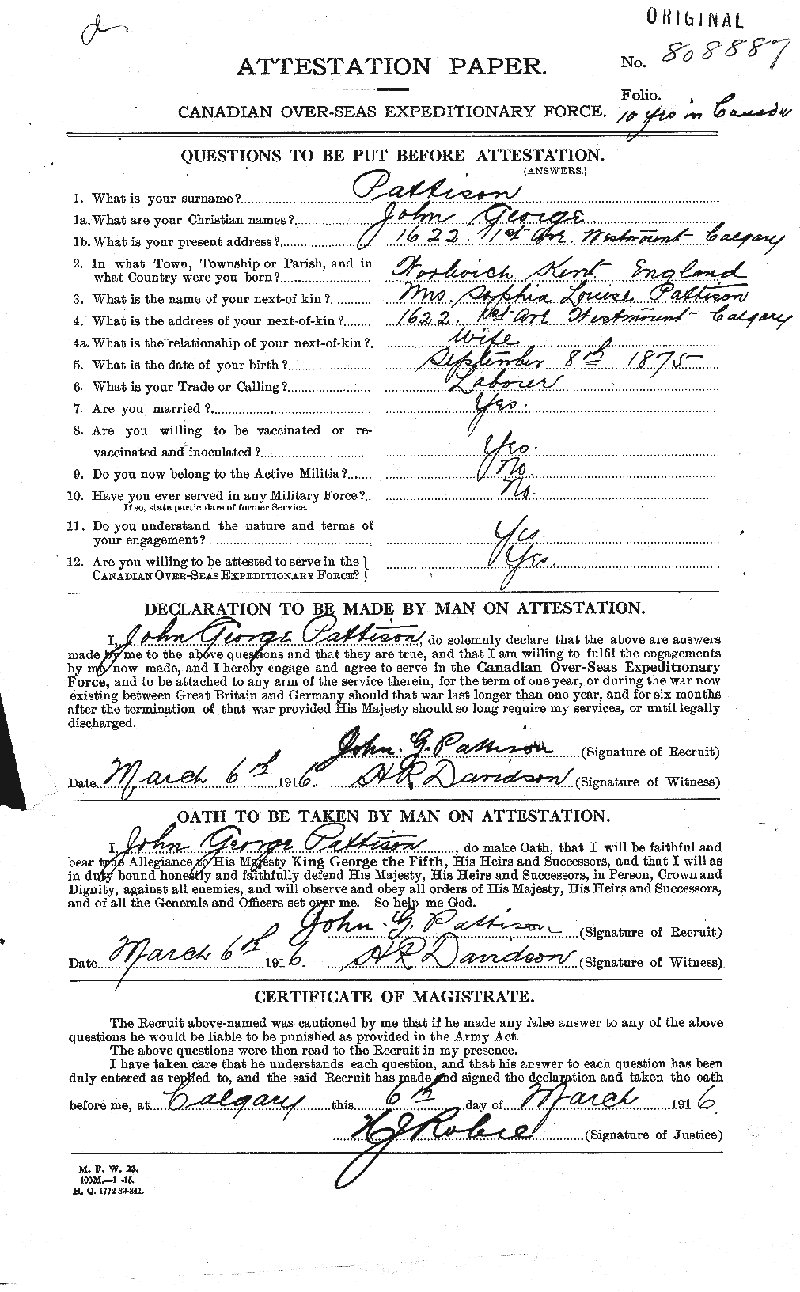 ORIGINAL
ATTESTATION PAPER.
No. 808887
Folio.
CANADIAN OVER-SEAS EXPEDITIONARY FORCE.
10 yrs in Canada
QUESTIONS TO BE PUT BEFORE ATTESTATION.
(ANSWERS.)
1. What is your surname? Pattison
1a. What are your Christian names? John George
1b. What is your present address? 1622 1st Ave. Westmount Calgary
2. In what Town, Township or Parish, and in
what Country were you born? Woolwich Kent England
3. What is the name of your next-of kin? Mrs Sophia Louise Pattison
4. What is the address of your next-of-kin? 1622 1st Ave Westmount Calgary
4a. What is the relationship of your next-of-kin? Wife
5. What is the date of your birth? September 8th 1875
6. What is your Trade or Calling? Laborer
7. Are you married? Yes.
8. Are you willing to be vaccinated or re-
vaccinated and inoculated? Yes.
9. Do you now belong to the Active Militia? No
10. Have you ever served in any Military Force? No.
If so, state particulars of former Service.
11. Do you understand the nature and terms of
your engagement? Yes
12. Are you willing to be attested to serve in the
CANADIAN OVER-SEAS EXPEDITIONARY FORCE? Yes.
DECLARATION TO BE MADE BY MAN ON ATTESTATION.
I, John George Pattison, do solemnly declare that the above are answers
made by me to the above questions and that they are true, and that I am willing to fulfil the engagements
by me now made, and I hereby engage and agree to serve in the Canadian Over-Seas Expeditionary
Force, and to be attached to any arm of the service therein, for the term of one year, or during the war now
existing between Great Britain and Germany should that war last longer than one year, and for six months
after the termination of that war provided His Majesty should so long require my services, or until legally
discharged.
John. G. Pattison (Signature of Recruit)
Date March 6th 1916. H R Davidson (Signature of Witness)
OATH TO BE TAKEN BY MAN ON ATTESTATION.
I, John George Pattison, do make Oath, that I will be faithful and
bear true Allegiance to His Majesty King George the Fifth, His Heirs and Successors, and that I will as
in duty bound honestly and faithfully defend His Majesty, His Heirs and Successors, in Person, Crown and
Dignity, against all enemies, and will observe and obey all orders of His Majesty, His Heirs and Successors,
and of all the Generals and Officers set over me. So help me God.
John. G. Pattison (Signature of Recruit)
Date March 6th 1916. H R Davidson (Signature of Witness)
CERTIFICATE OF MAGISTRATE.
The Recruit above-named was cautioned by me that if he made any false answer to any of the above
questions he would be liable to be punished as provided in the Army Act.
The above questions were then read to the Recruit in my presence.
I have taken care that he understands each question, and that his answer to each question has been
duly entered as replied to, and the said Recruit has made and signed the declaration and taken the oath
before me, at Calgary this 6th day of March 1916
(Signature of Justice)
M. F. W. 23.
H. Q. 1772